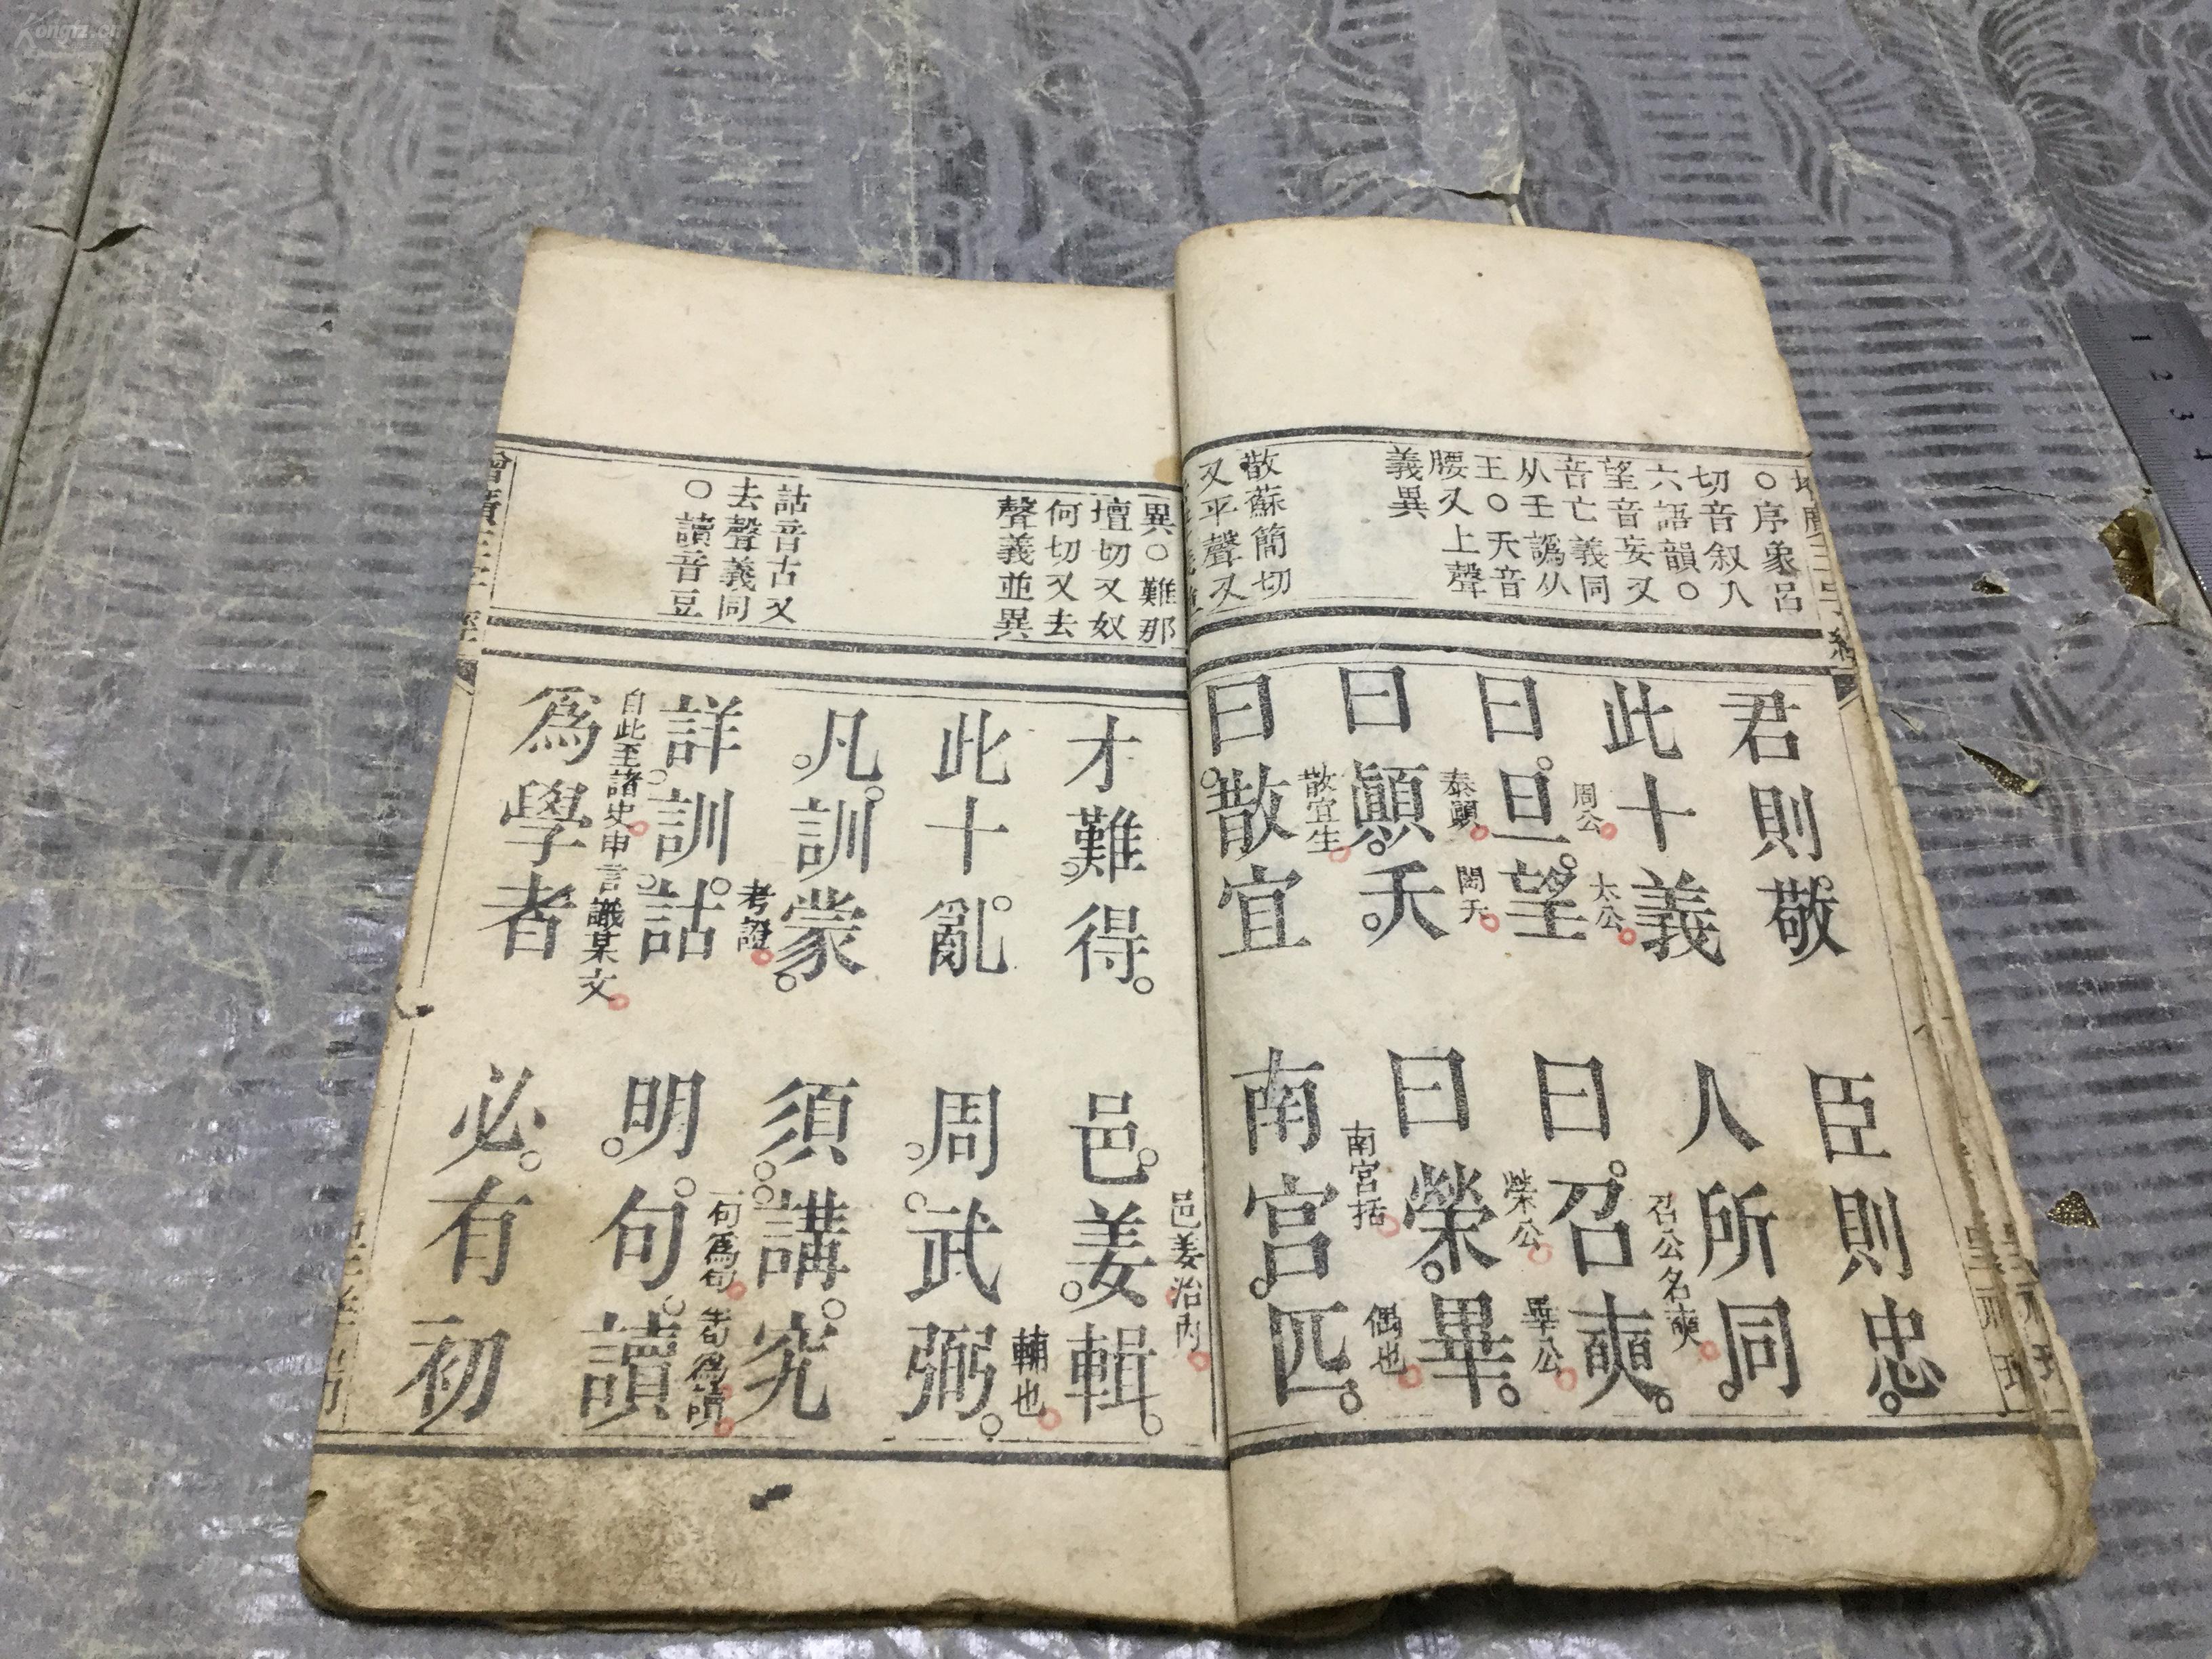 ○序象呂
切音叙入
六語韻○
望音妄又
音亡義同
从王譌从
王○夭音
腰又上聲
義異
散蘇簡切
又平聲又
君則敬 臣則忠
此十義 人所同
曰旦望 曰召奭
周公 太公 召公名奭
曰顚夭 曰榮畢
泰顚 閎夭 榮公 畢公
曰散宜 南宫匹
散宜生 南宮括 偶也
異○難那
壇切又奴
何切又去
聲義並異
詁音古又
去聲義同
○讀音豆
才難得 邑姜輯
邑姜治內
此十亂 周武弼
輔也
凡訓蒙 須講究
考證
詳訓詁 明句讀
一句爲句 半句爲讀
爲學者 必有初
自此至諸史申言識某文
1 2 3 4